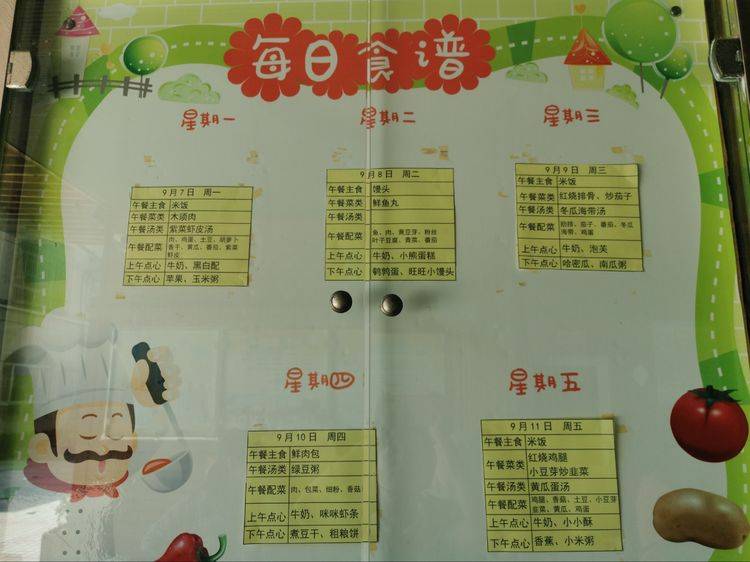 每日食谱
星期一
9月7日 周一
午餐主食 米饭
午餐菜类 木须肉
午餐汤类 紫菜虾皮汤
午餐配菜 肉、鸡蛋、土豆、胡萝卜
香干、黄瓜、番茄、紫菜
虾皮
上午点心 牛奶、黑白配
下午点心 苹果、玉米粥
星期二
9月8日 周二
午餐主食 馒头
午餐菜类 鲜鱼丸
午餐汤类
午餐配菜 鱼、肉、黄豆芽、粉丝
叶子豆腐、青菜、番茄
上午点心 牛奶、小熊蛋糕
下午点心 鹌鹑蛋、旺旺小馒头
星期三
9月9日 周三
午餐主食 米饭
午餐菜类 红烧排骨、炒茄子
午餐汤类 冬瓜海带汤
午餐配菜 肋排、茄子、番茄、冬瓜
海带、鸡蛋
上午点心 牛奶、泡芙
下午点心 哈密瓜、南瓜粥
星期四
9月10日 周四
午餐主食 鲜肉包
午餐汤类 绿豆粥
午餐配菜 肉、包菜、细粉、香菇
上午点心 牛奶、咪咪虾条
下午点心 煮豆干、粗粮饼
星期五
9月11日 周五
午餐主食 米饭
午餐菜类 红烧鸡腿
小豆芽炒韭菜
午餐汤类 黄瓜蛋汤
午餐配菜 鸡腿、香菇、土豆、小豆芽
韭菜、黄瓜、鸡蛋
上午点心 牛奶、小小酥
下午点心 香蕉、小米粥